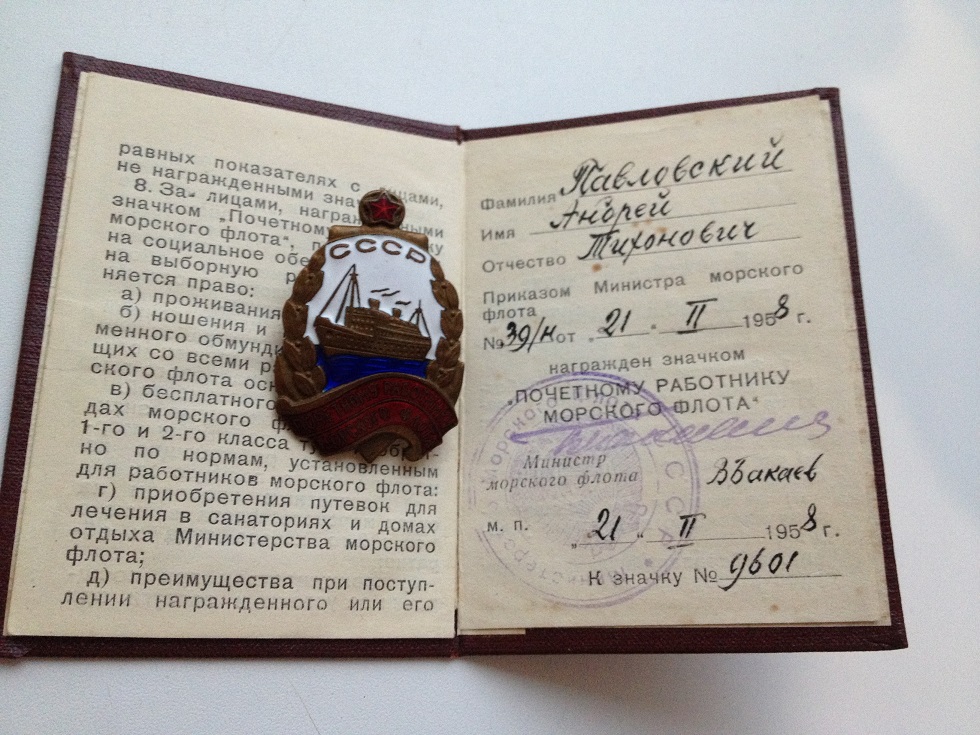 равных показателях с лицами,
не награжденными
8. За лицами,
значком „Почетному
морского флота",
на социальное
на выборную
няется право:
а) проживания
б) ношения и
менного
щих со всеми
ского флота
в) бесплатного
дах морского
1-го и 2-го класса
но по нормам, установленным
для работников морского флота:
г) приобретения путевок для
лечения в санаториях и домах
отдыха Министерства морского
флота;
д) преимущества при поступ-
лении награжденного или его
СССР
Фамилия Павловский
Имя Андрей
Отчество Тихонович
Приказом Министра морского
флота
№ 39/н от „21" II 1958 г.
награжден значком
„ПОЧЕТНОМУ РАБОТНИКУ
МОРСКОГО ФЛОТА"
Министр
морского флота ВБакаев
м. п. „21" II 1958 г.
К значку № 9601